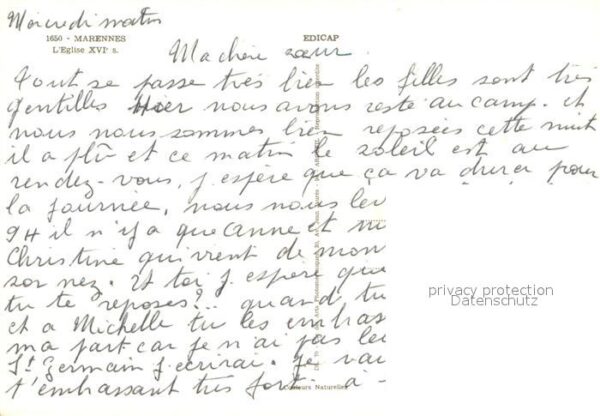 Mercredi matin
1650 - MARENNES
L'Eglise XVIe s.
EDICAP
Ma chère sœur
Tout se passe très bien les filles sont très
gentilles Hier nous avons resté au camp. et
nous nous sommes bien reposées cette nuit
il a plû et ce matin le soleil est au
rendez-vous, j'espère que ça va durer pour
la journée, nous nous lev
9H il n'y a que Anne et
Christine qui vient de mon
son nez. Et toi j'espère que
tu te reposes?.. quand tu
et à Michelle tu les embras
ma part car je n'ai pas
St Germain j'écrirai. Je vai
t'embrassant très fort. à -
Couleurs Naturelles
privacy protection
Datenschutz